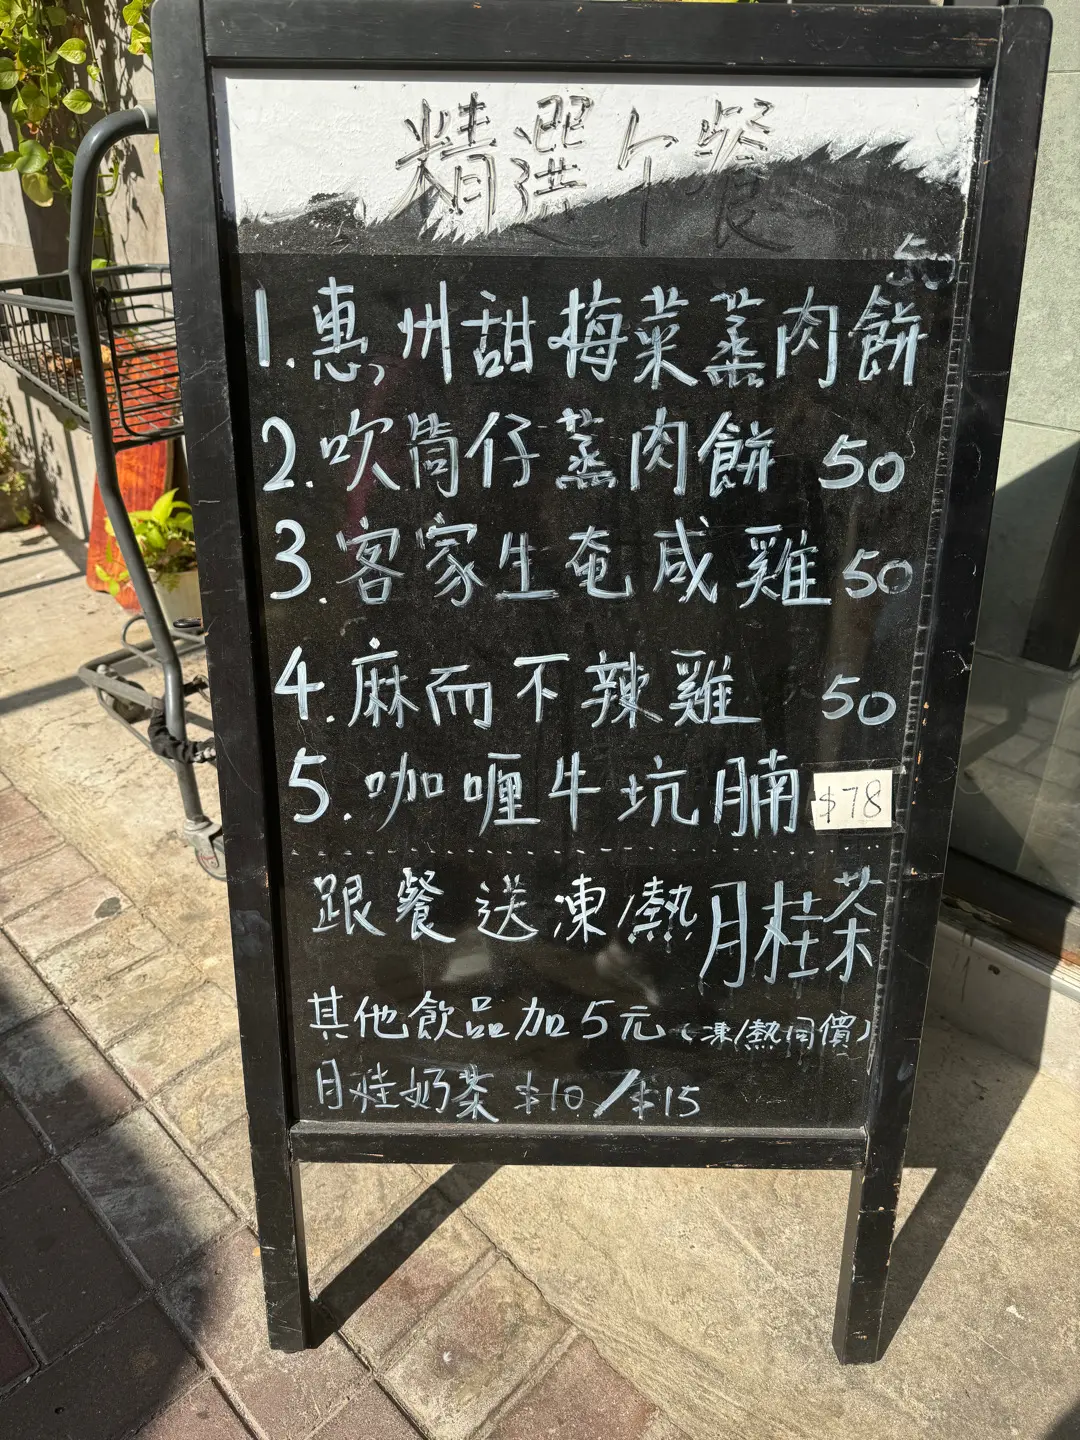 精選午餐
50
1.惠州甜梅菜蒸肉餅
2.吹筒仔蒸肉餅 50
3.客家生奄咸雞 50
4.麻而不辣雞 50
5.咖喱牛坑腩 $78
跟餐送凍/熱月桂茶
其他飲品加5元(凍/熱同價)
月桂奶茶 $10/$15